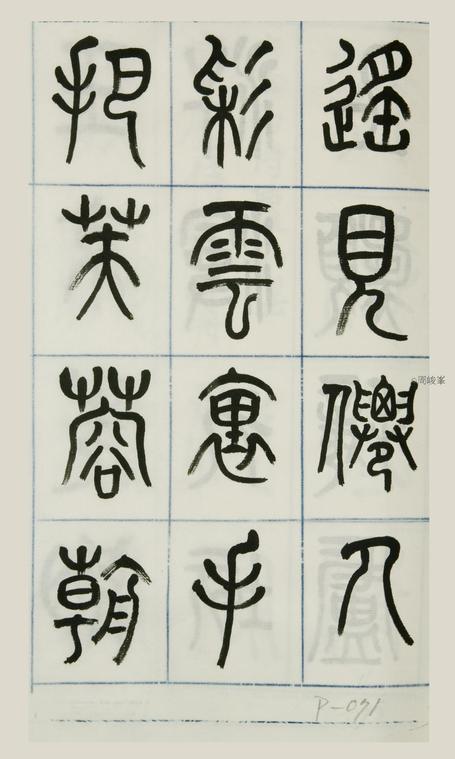 遙見僊人
彩雲裏手
把芙蓉朝
P-071
@周峻峯